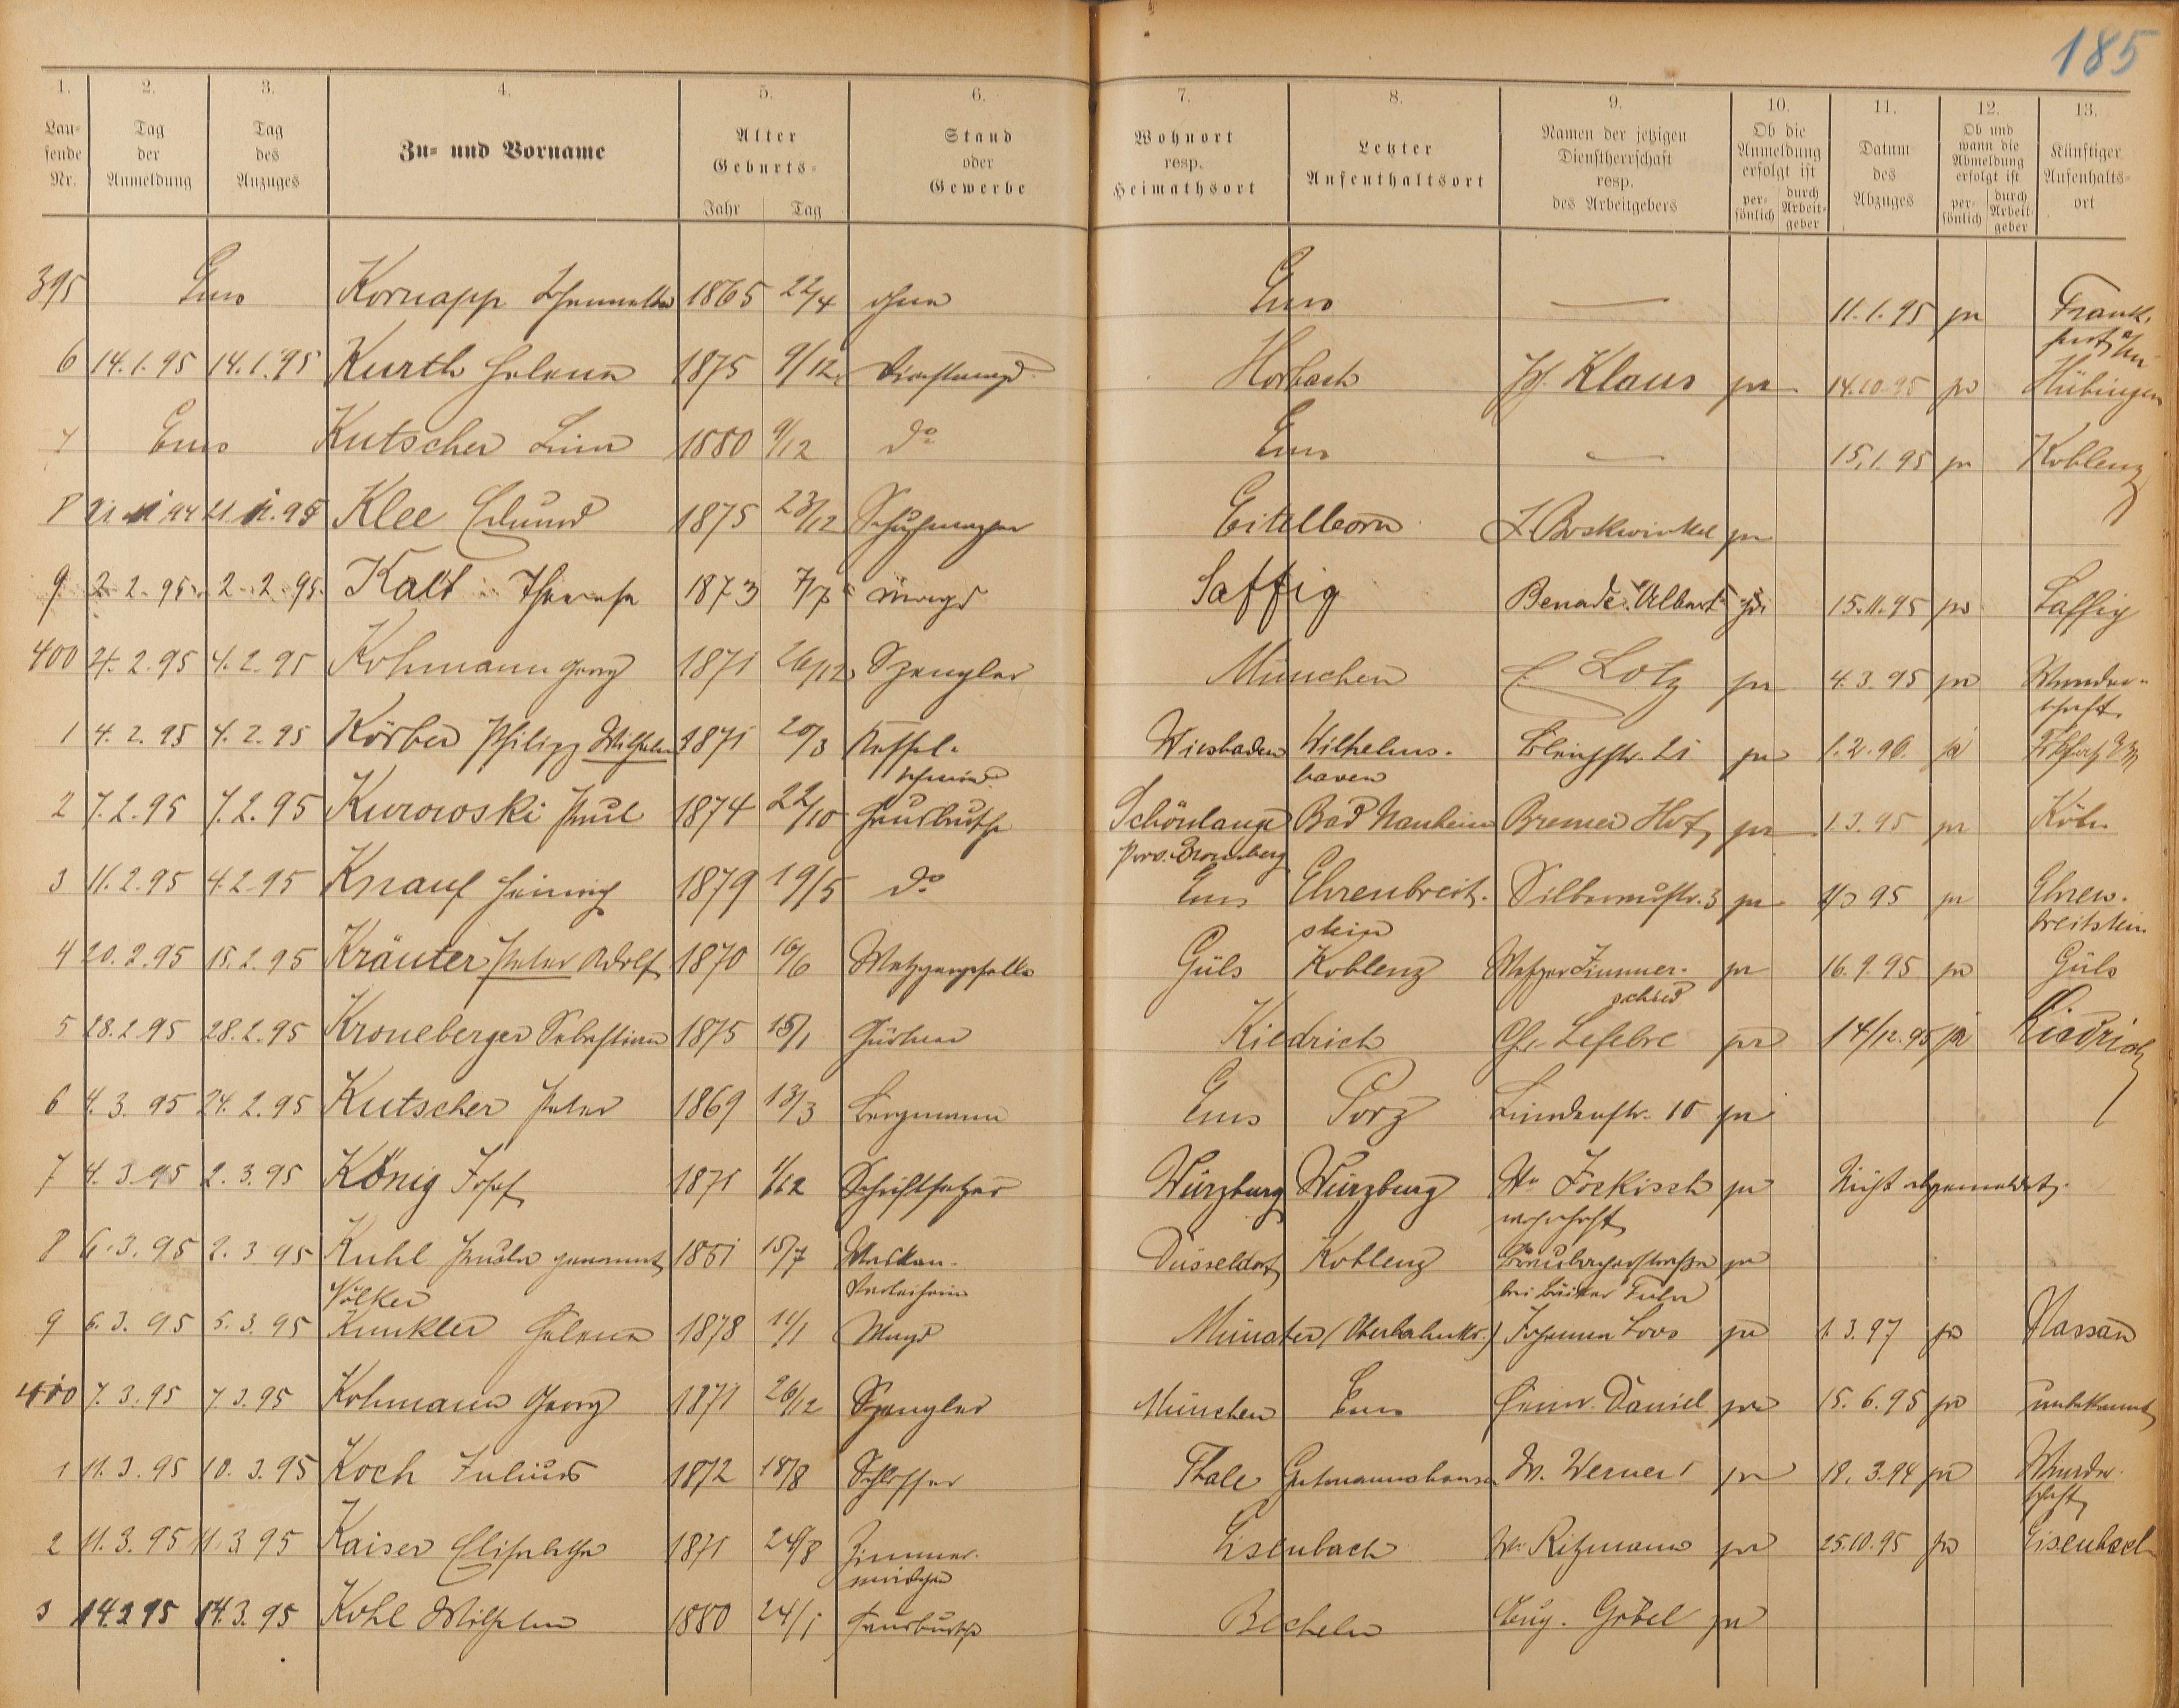 185
1. 2. 3. 4. 5. 6. 7. 8. 9. 10. 11. 12. 13.
Lau-
fende
Nr.
Tag
der
Anmeldung
Tag
des
Anzuges
Zu- und Vorname
Alter
Geburts-
Jahr Tag
Stand
oder
Gewerbe
Wohnort
resp.
Heimathsort
Letzter
Aufenthaltsort
Namen der jetzigen
Dienstherrschaft
resp.
des Arbeitgebers
Ob die
Anmeldung
erfolgt ist
per-
sönlich
durch
Arbeit-
geber
Datum
des
Abzuges
Ob und
wann die
Abmeldung
erfolgt ist
per-
sönlich
durch
Arbeit-
geber
Künftiger
Aufenthalts-
ort
395 Ems Kornapp 1865 22/4 ohne Ems — 11.1.95 pr Frank-
furt a/M
6 14.1.95 14.1.95 Kurth Helena 1875 9/12 Dienstmagd Horbach Jos. Klaus pr 14.10.95 pr Hübingen
7 Ems Kutscher Lina 1880 9/12 do Ems — 15.1.95 pr Koblenz
8 Klee Edmund 1875 23/12 Schuhmacher Eitelborn pr
9 2.2.95 2.2.95 Kalt Therese 1873 7/7 Magd Saffig Benade Albert 15.11.95 pr Saffig
400 4.2.95 4.2.95 Kohmann Georg 1871 26/12 Spengler München E. Lotz pr 4.3.95 pr Wander-
schaft
1 4.2.95 4.2.95 Körber Philipp Wilhelm 1871 20/3 Kessel-
schmied
Wiesbaden Wilhelms-
haven
Bleichstr. 21 pr 1.2.96 pr
2 7.2.95 7.2.95 Kurowski Paul 1874 22/10 Hausbursche Schönlange
Prov. Bromberg
Bad Nauheim Bremer Hof pr 1.3.95 pr Köln
3 11.2.95 4.2.95 Knauf Heinrich 1879 19/5 do Ems Ehrenbreit-
stein
Silberaustr. 3 pr 95 pr Ehren-
breitstein
4 20.2.95 15.2.95 Kräuter Peter Adolf 1870 16/6 Metzgergeselle Güls Koblenz Metzger Zimmer-
schied
pr 16.9.95 pr Güls
5 28.2.95 28.2.95 Kroneberger Sebastian 1875 15/1 Gärtner Kiedrich Lefebre pr 14/12.95 pr Kiedrich
6 4.3.95 24.2.95 Kutscher Peter 1869 13/3 Bergmann Ems Porz Lindenstr. 10 pr
7 4.3.95 2.3.95 König Josef 1871 Schriftsetzer Würzburg Würzburg Jockisch pr Nicht abgemeldet.
wohnhaft
8 6.3.95 2.3.95 Kuhl Paula genannt
Völker
1851 15/7 Masken-
verleiherin
Düsseldorf Koblenz Braubacherstrasse pr
bei Bäcker
9 6.3.95 5.3.95 Kunkler Helena 1878 11/1 Magd Münster (Oberlahnkr.) Johann Loos pr 1.3.97 pr Nassau
7.3.95 7.3.95 Kohmann Georg 1871 26/12 Spengler München Ems Heinr. Daniel pr 15.6.95 pr unbekannt
1 11.3.95 10.3.95 Koch Julius 1872 18/8 Schlosser Thale Gutmannshausen W. Werner pr 18.3.94 pr Wander-
schaft
2 11.3.95 11.3.95 Kaiser Elisabethe 1871 24/8 Zimmer-
mädchen
Eisenbach Ww. Ritzmann pr 25.10.95 pr Eisenbach
3 14.3.95 14.3.95 Kohl Wilhelm 1880 24/1 Hausbursche Becheln Aug. Göbel pr